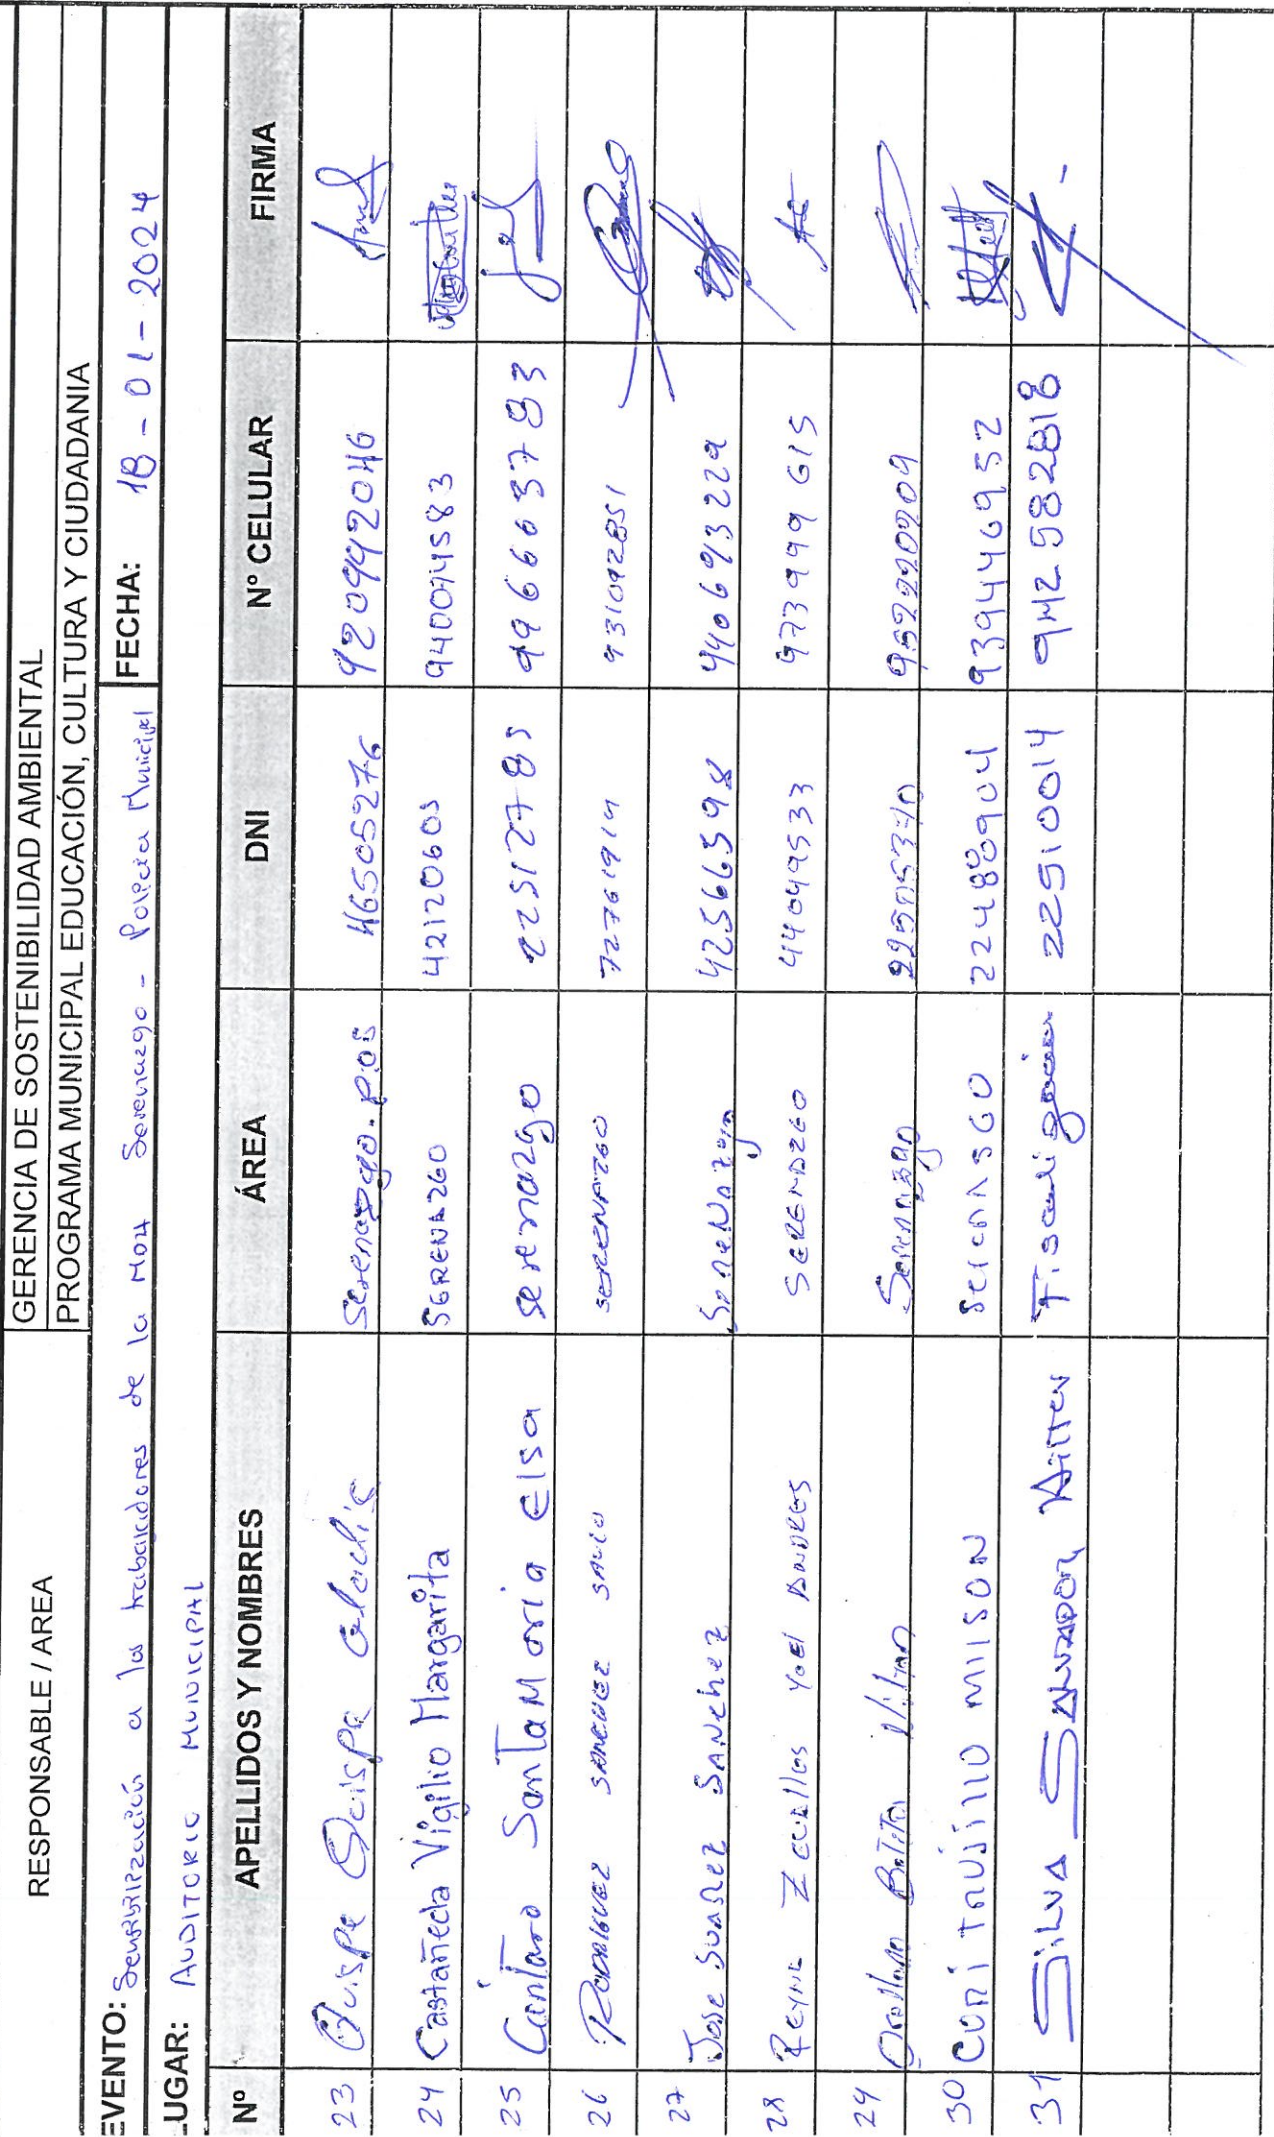 RESPONSABLE / AREA
GERENCIA DE SOSTENIBILIDAD AMBIENTAL
PROGRAMA MUNICIPAL EDUCACIÓN, CULTURA Y CIUDADANIA
EVENTO: Sensibilización a los trabajadores de la MDH Serenazgo - Policia Municipal FECHA: 18 - 01 - 2024
LUGAR: AUDITORIO MUNICIPAL
Nº APELLIDOS Y NOMBRES ÁREA DNI Nº CELULAR FIRMA
23 Quispe Quispe Gladis Serenazgo. 46505276 920942046
24 Castañeda Vigilio Margarita SERENAZGO 42120603 940074583
25 Cantaro SantaMaria Elsa serenazgo 22512785 996663783
26 RODRIGUEZ SANCHEZ SAUIO SERENAZGO 72761914 931092851
27 Jose SUAREZ SANCHEZ 42566598 440693229
28 REYNE Zevallos Yoel ANDRES SERENAZGO 44049533 973999615
29 Orellano Serenazgo 22505370 952220909
30 CORI TRUJILLO MISON serenasgo 22489904 939446952
31 SILVA SALVADOR Fiscalización 22510014 942582818